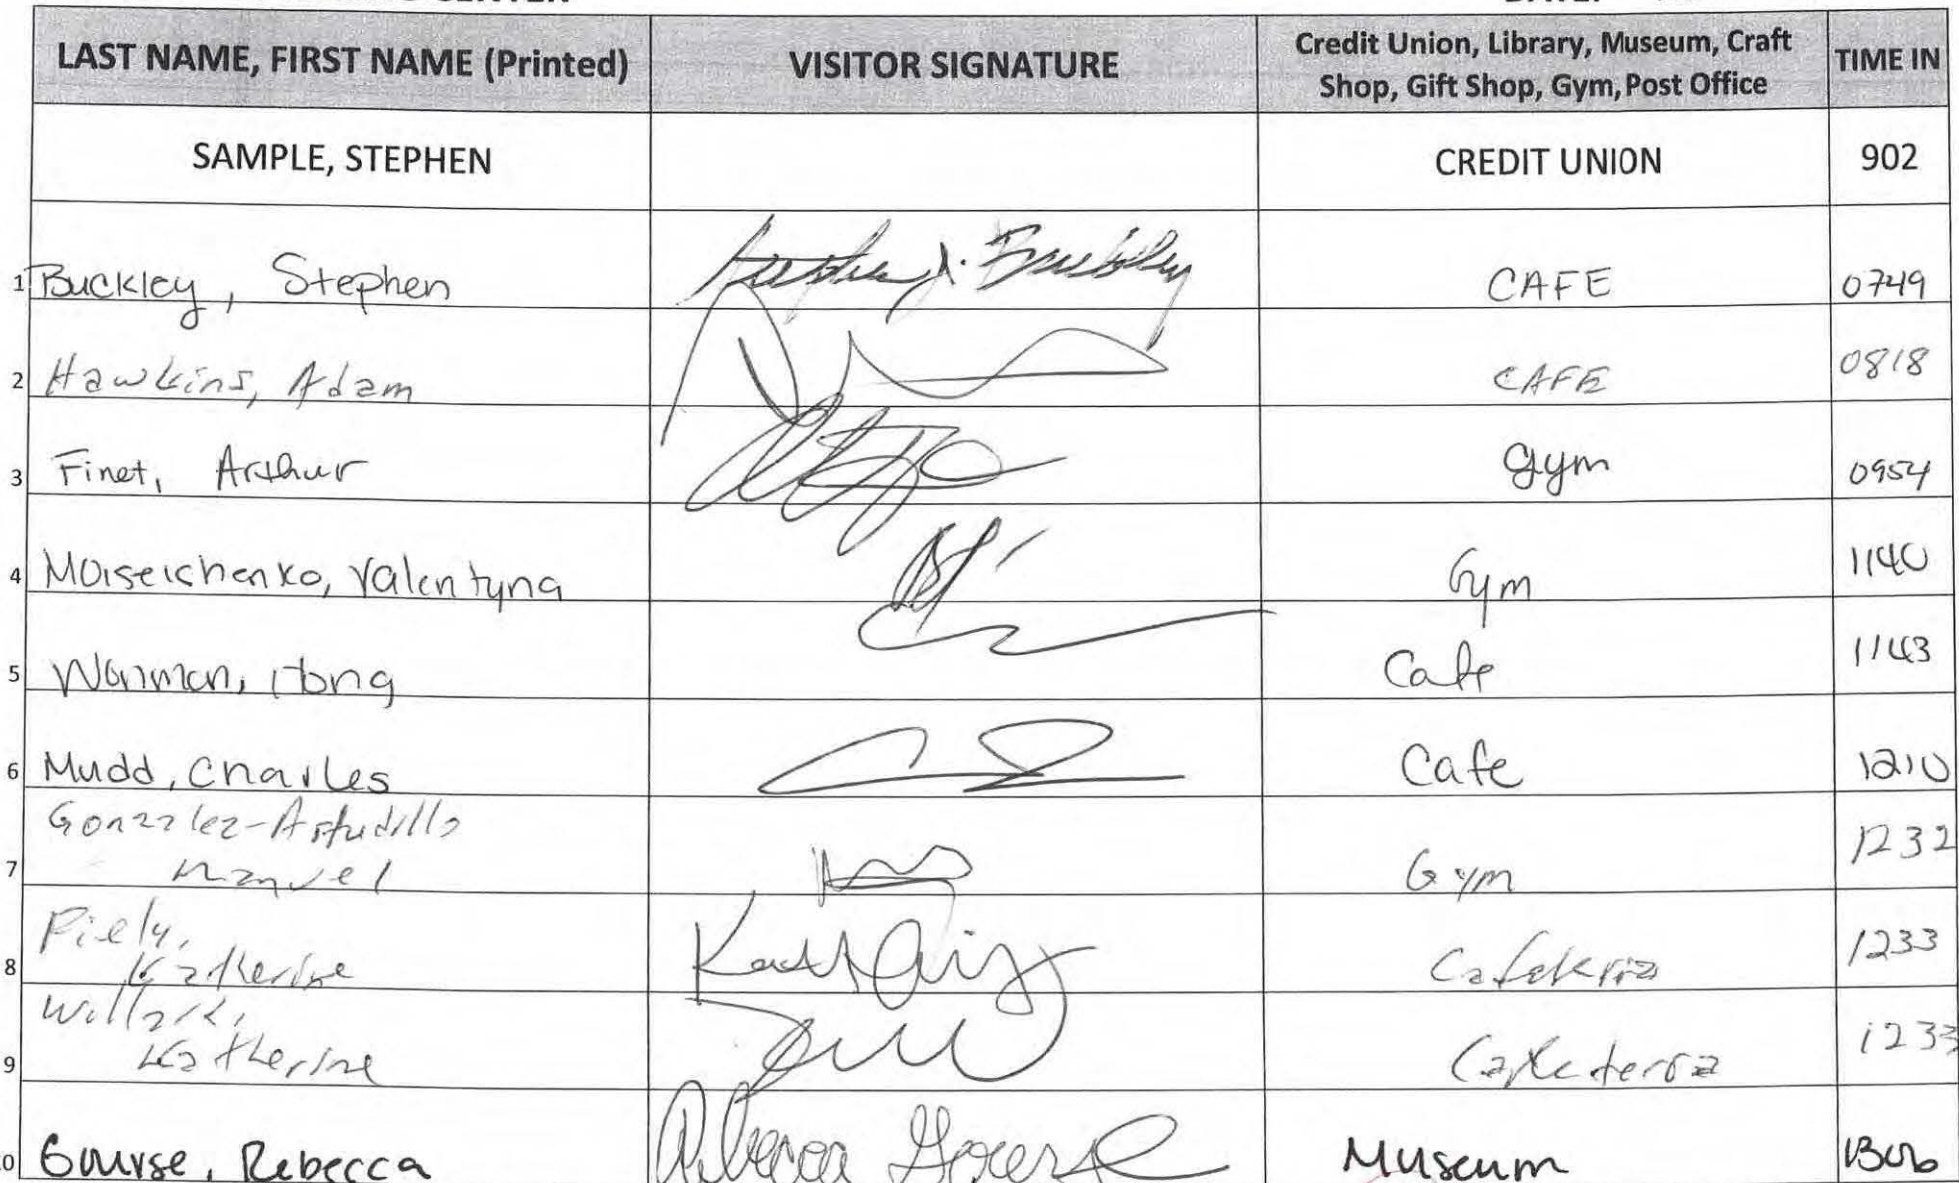 LAST NAME, FIRST NAME (Printed) VISITOR SIGNATURE Credit Union, Library, Museum, Craft Shop, Gift Shop, Gym, Post Office TIME IN
SAMPLE, STEPHEN CREDIT UNION 902
1 Buckley, Stephen Stephen J. Buckley CAFE 0749
2 Hawkins, Adam CAFE 0818
3 Finet, Arthur Gym 0954
4 Moiseichenko, Valentyna Gym 1140
5 Hong Cafe 1143
6 Mudd, Charles Cafe 1210
Gonzalez-Astudillo
7 Manuel Gym 1232
8 Katherine Cafeteria 1233
Willard,
9 Katherine Cafeteria 1233
Gourse, Rebecca Rebecca Gourse Museum